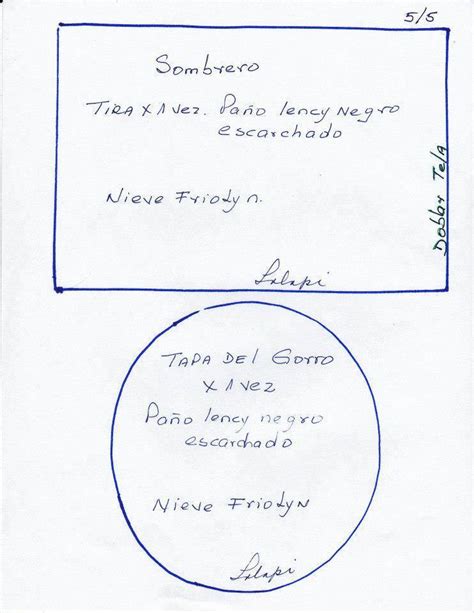 5/5
Sombrero
TIRA X 1 Vez. Paño lency Negro
escarchado
Doblar Tela
Nieve Friolyn.
Lalapi
TAPA DEl Gorro
X 1 vez
Paño lency negro
escarchado
Nieve FriolyN
Lalapi